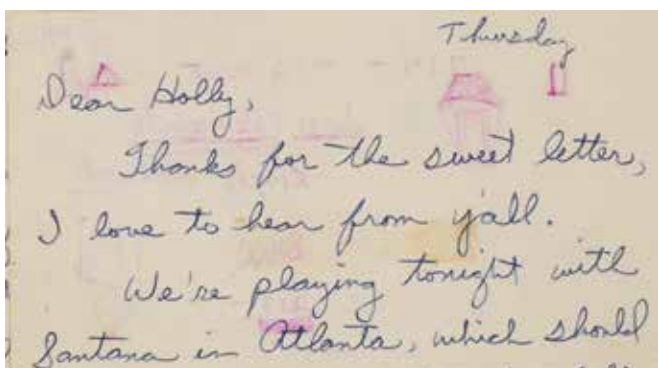 Thursday
Dear Holly,
Thanks for the sweet letter,
I love to hear from y'all.
We're playing tonight with
Santana in Atlanta, which should